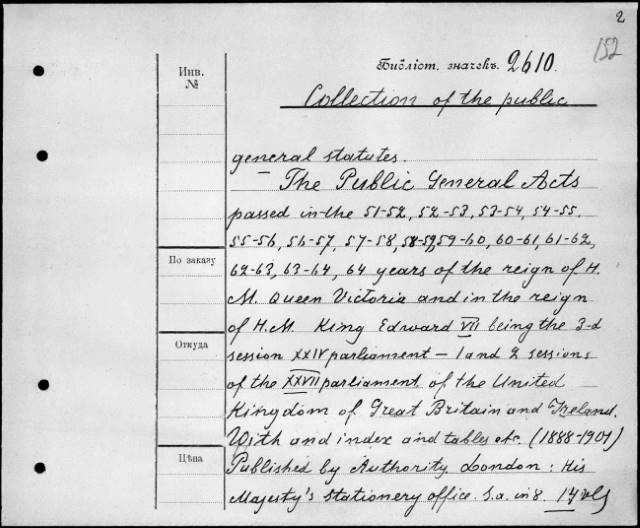 2
152
Инв.
№
Библіот. значекъ. 2610.
Collection of the public
general statutes.
The Public General Acts
passed in the 51-52, 52-53, 53-54, 54-55,
55-56, 56-57, 57-58, 58-59, 59-60, 60-61, 61-62,
По заказу
62-63, 63-64, 64 years of the reign of H.
M. Queen Victoria and in the reign
of H.M. King Edward VII being the 3-d
Откуда
session XXIV parliament – 1 and 2 sessions
of the XXVII parliament of the United
Kingdom of Great Britain and Ireland.
With and index and tables etc. (1888-1901)
Цѣна
Published by Authority London: His
Majesty's stationery office. S.a. in 8. 14 vls